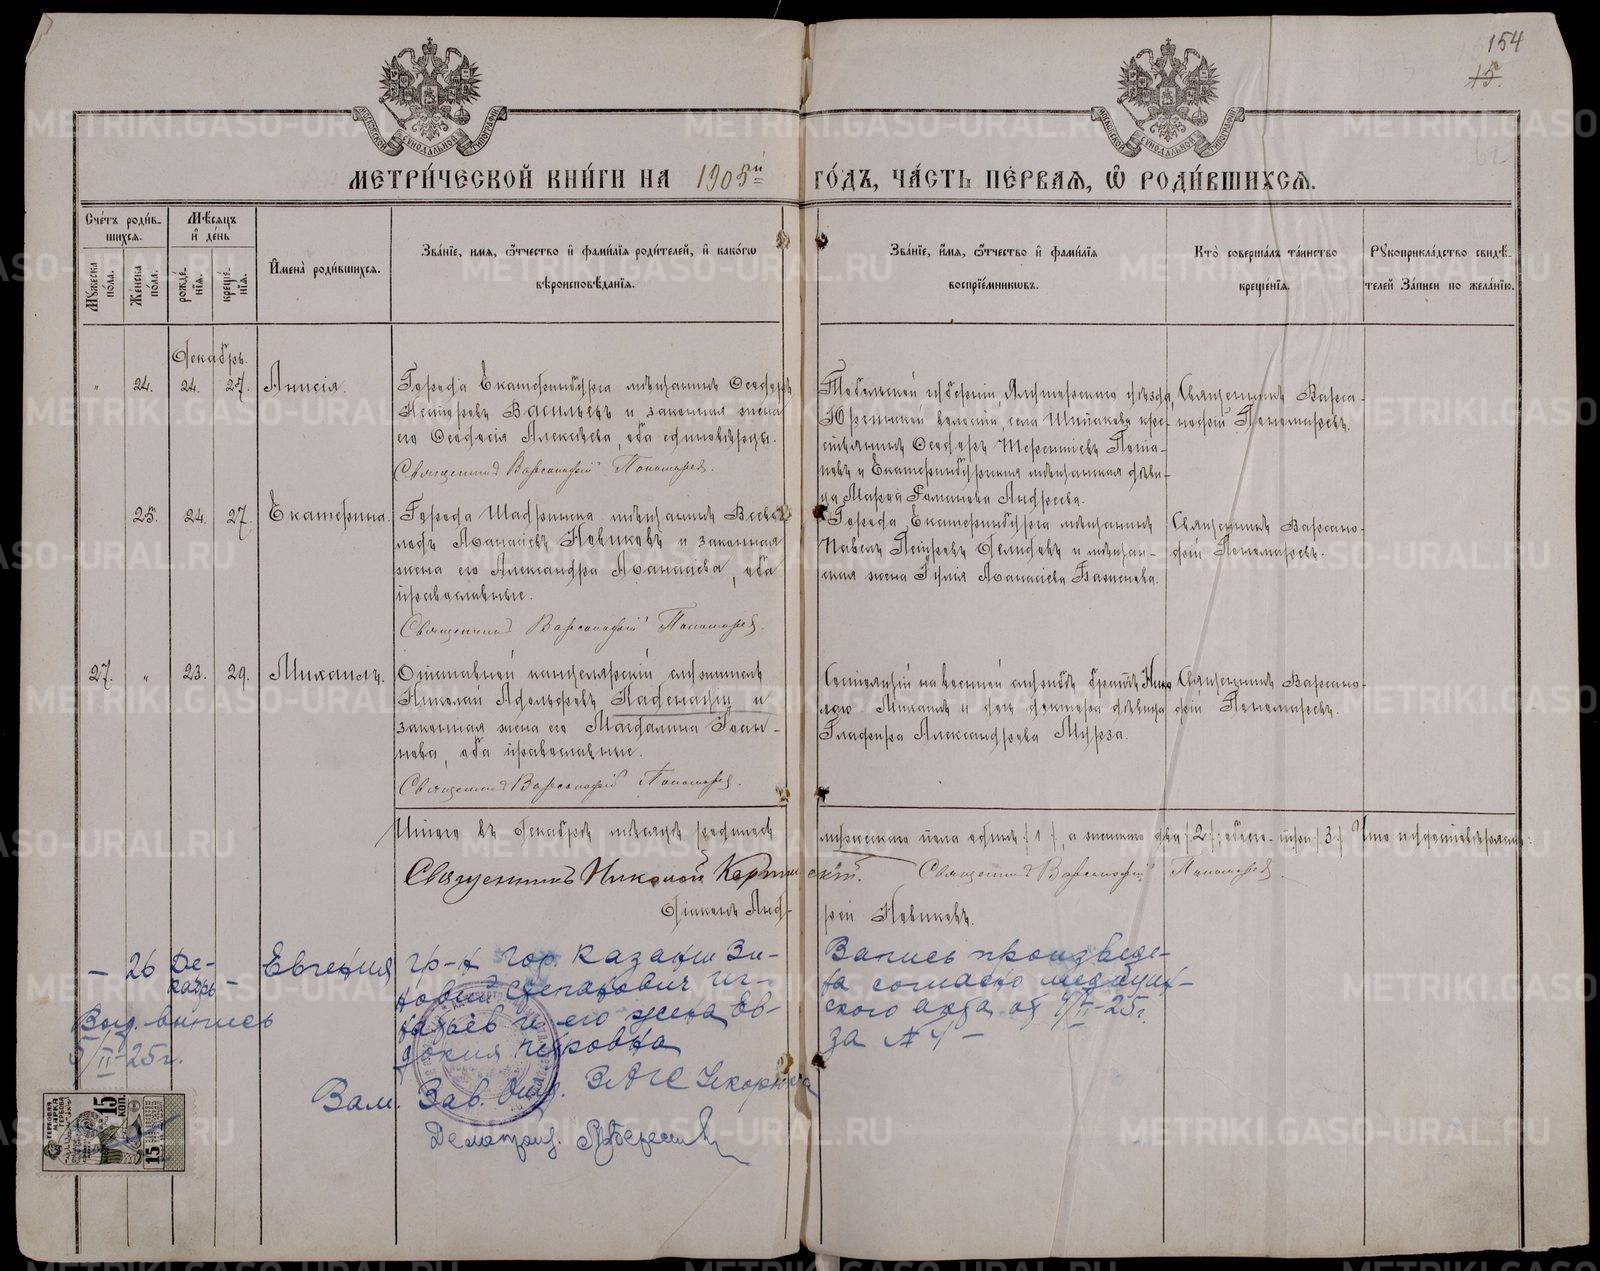 154
15.
МЕТРИ́ЧЕСКОЙ КНИ́ГИ НА 1905й ГО́ДЪ, ЧА́СТЬ ПЕ́РВАѦ, Ѡ҆ РОДИ́ВШИХСѦ.
Сче́тъ роди́вшихсѧ.
Мѣ́сѧцъ и҆ де́нь
И҆мена̀ роди́вшихсѧ.
Зва́нїе, и҆́мѧ, ѻ҆́тчество и҆ фами́лїѧ роди́телей, и҆ како́гѡ вѣроисповѣ́данїѧ.
Зва́нїе, и҆́мѧ, ѻ҆́тчество и҆ фами́лїѧ воспрїе́мникѡвъ.
Кто̀ соверша́лъ та́инство креще́нїѧ.
Рꙋкоприкла́дство свидѣ́телей за́писи по жела́нїю.
Мꙋ́жеска по́ла.
Же́нска по́ла.
рожде́нїѧ.
креще́нїѧ.
Декабрь.
" 24. 24. 27. Анисія.
Города Екатеринбурга мѣщанинъ Ѳеодоръ
Несторовъ Васильевъ и законная жена
его Ѳеодосія Алексѣева, оба единовѣрцы.
Священникъ Варсонофій Пономаревъ.
Тобольской губерніи, Ялуторовскаго уѣзда,
волости, села кре-
стьянинъ Ѳеодоръ Терентіевъ
и Екатеринбургская мѣщанская дѣви-
ца Марѳа Андреева.
Священникъ Варсо-
нофій Пономаревъ.
25. 24. 27. Екатерина.
Города Шадринска мѣщанинъ Всево-
лодъ Аѳанасіевъ Новиковъ и законная
жена его Александра Аѳанасіева, оба
православные.
Священникъ Варсонофій Пономаревъ.
Города Екатеринбурга мѣщанинъ
Павелъ Петровъ и мѣщан-
ская жена Юлія Аѳанасіева Баженова.
Священникъ Варсоно-
фій Пономаревъ.
27. " 23. 29. Михаилъ.
Отставной канцелярскій служитель
Николай Адольфовъ и
законная жена его Магдалина Іоан-
нова, оба православные.
Священникъ Варсонофій Пономаревъ.
Состоящій на военной службѣ братъ Нико
лаю Михаилъ и дочь доктора дѣвица
Глафира Александрова Мурза.
Священникъ Варсоно-
фій Пономаревъ.
Итого въ Декабрѣ мѣсяцѣ родилось мужескаго пола одинъ /1/, а женскаго два /2/; обоего три /3/. Что удостовѣряемъ:
Священникъ Николай
Священникъ Варсонофій Пономаревъ
Діаконъ Анд-
рей Новиковъ.
— 26 Де-
кабрь — Евгения
гр-н гор. Казани Зи-
новий Степанович Иг-
натьев и его жена Ев-
докия Петровна
Запись произведе-
на согласно медицин-
ского акта от 4/II-25г.
за № 4/—
Выд. выпись
5/II-25г.
Зам. Зав. Отд. ЗАГС
Делопроиз.
ГЕРБОВАЯ МАРКА
15 КОП.
15